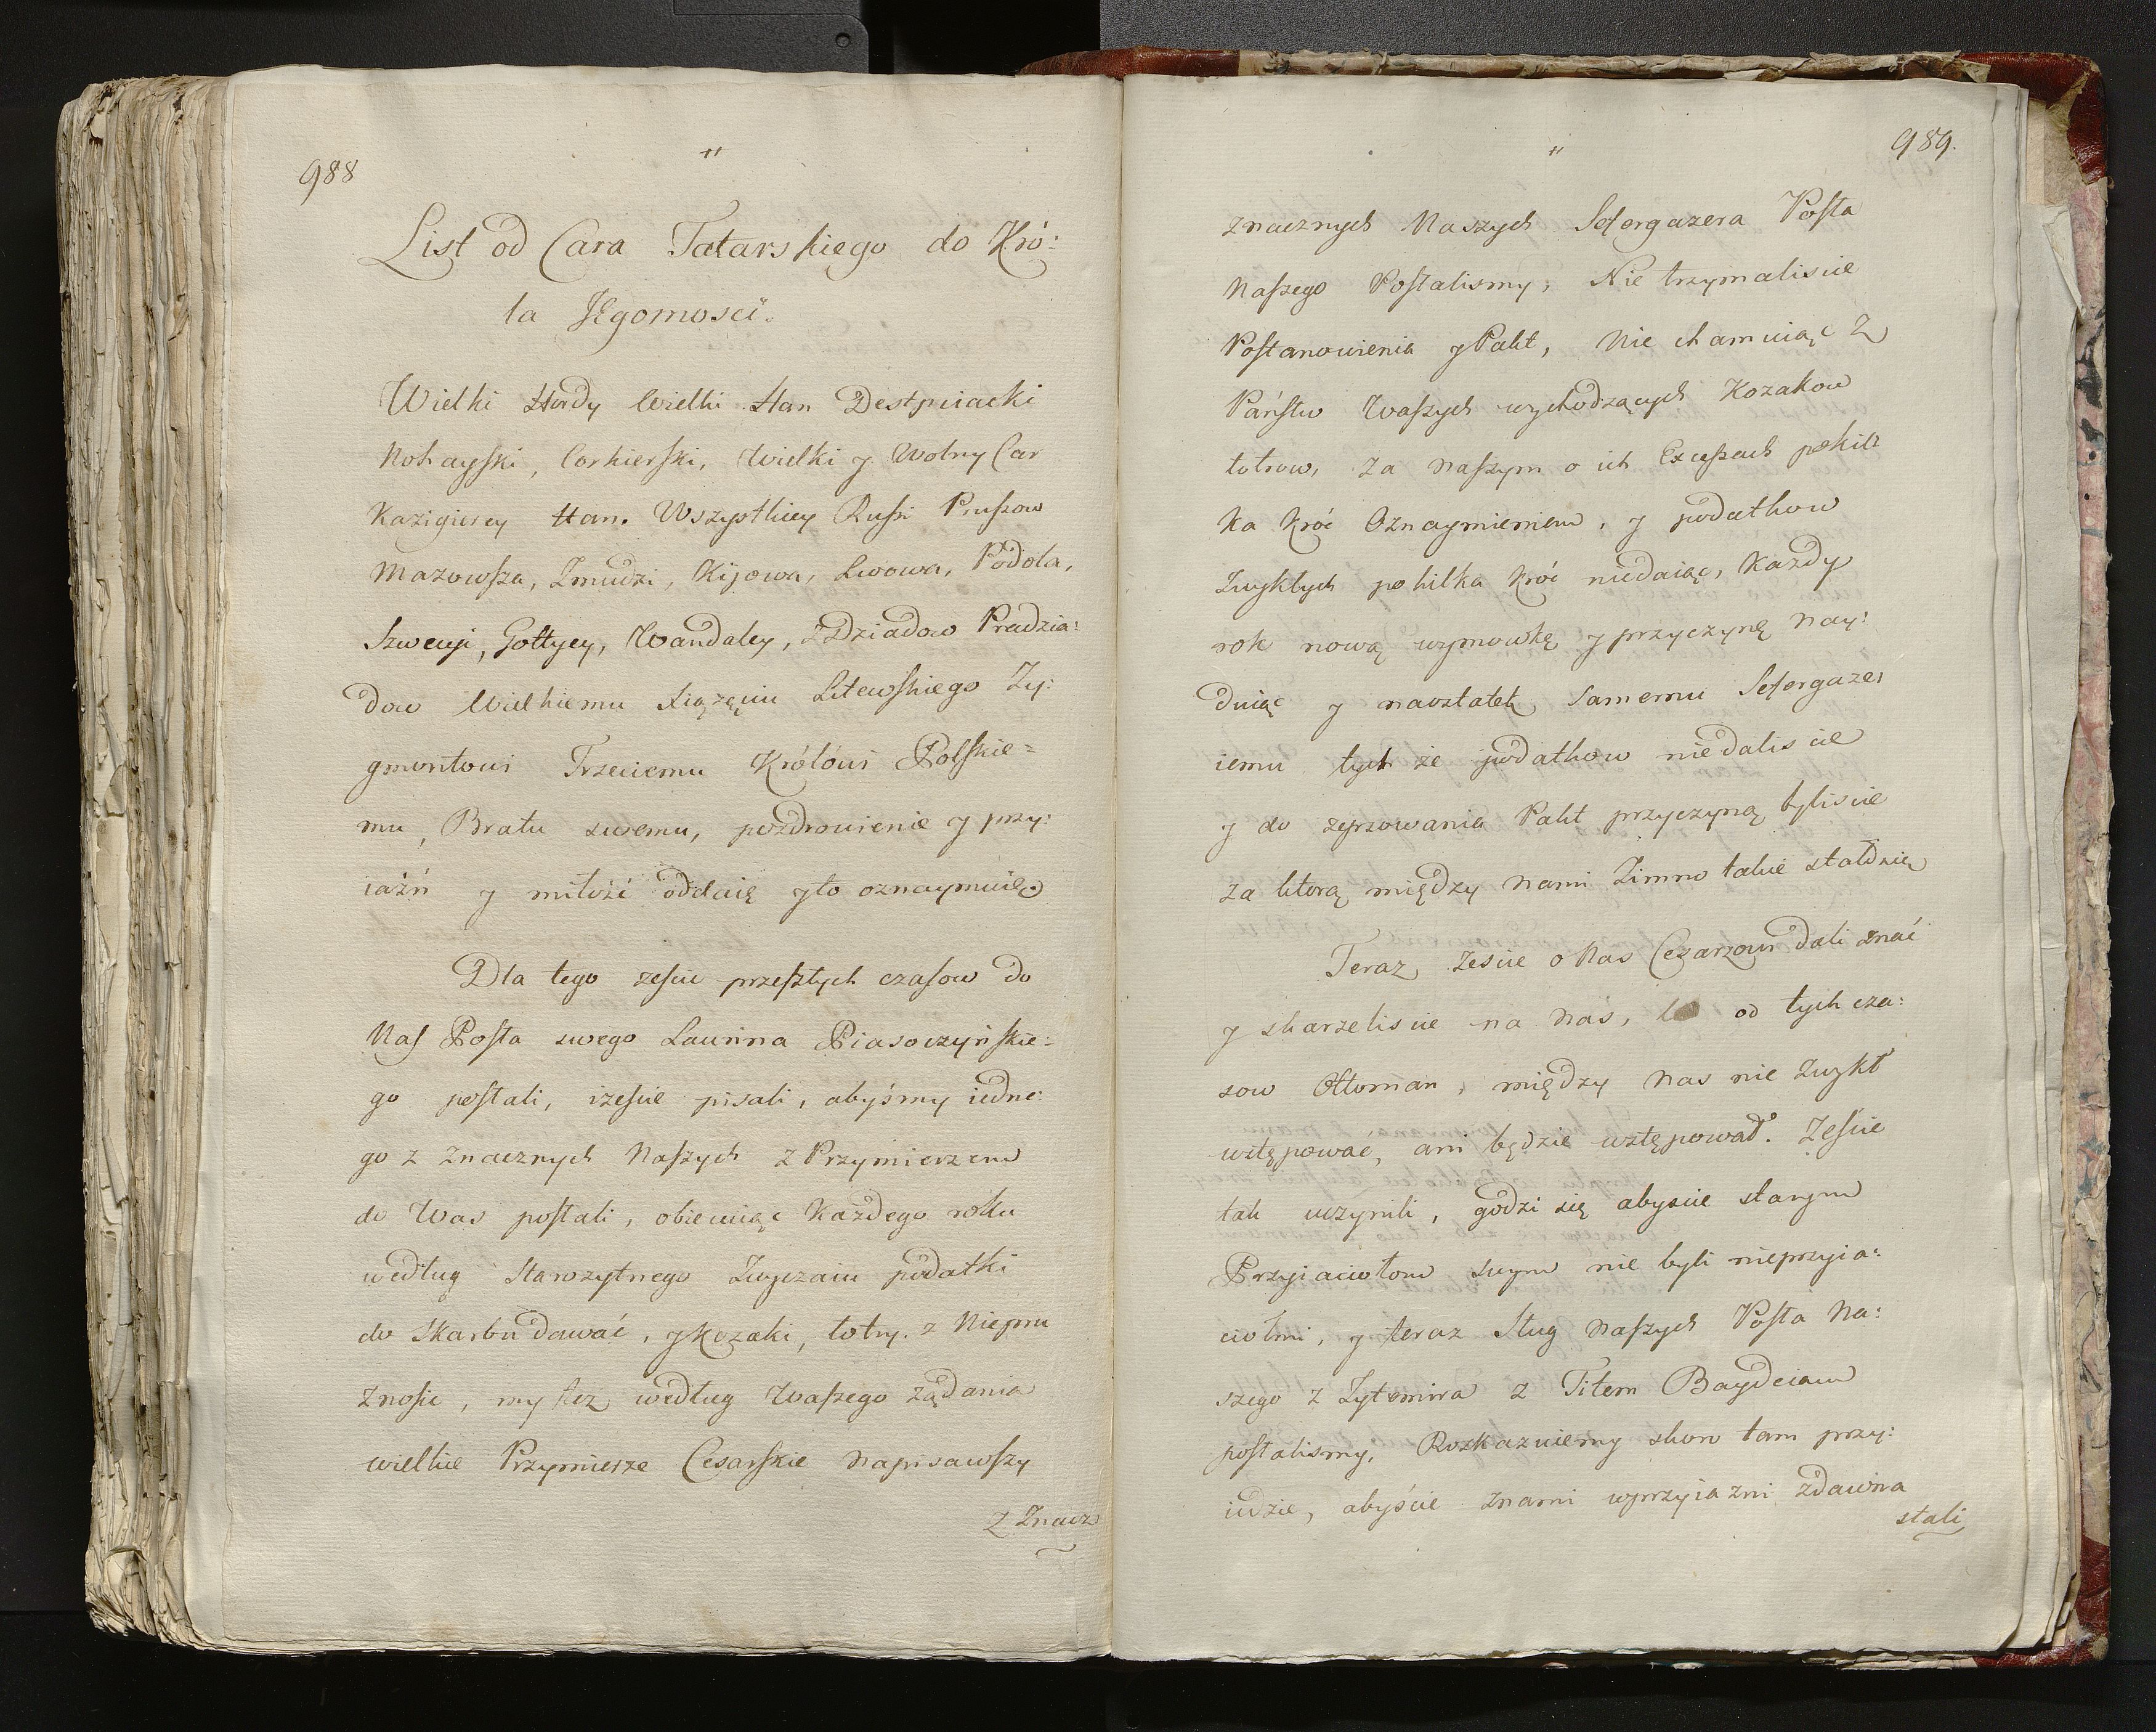 988
List od Cara Tatarskiego do Kró:
la JEgomosci.
Wielki Hordy Wielki Han Destpiiacki
Nohayski, Corkierski, Wielki y Wolny Car
Kazigierey Han. Wszystkiey Russi Prussow
Mazowsza, Zmudzi, Kijowa, Lwowa, Podola,
Szwecyi, Gottyey, Wandaley, z Dziadow Pradzia:
dow Wielkiemu Xiązęciu Litewskiego Zy:
gmontowi Trzeciemu Królówi Polskie=
mu, Bratu swemu, pozdrowienie y przy:
iaźń y miłość oddaię y to oznaymuie
Dla tego zescie przeszłych czasow do
Nas Posła swego Lawrina Piasoczyńskie:
go posłali, izescie pisali, abyśmy iedne:
go z znacznych Naszych z Przymierzem
do Was posłali, obiecuiąc Każdego roku
według Starozytnego Zwyczaiu podatki
do Skarbu dawać, y Kozaki, łotry z Niepru
znosic, my też według Waszego żądania
wielkie Przymierze Cesarskie napisawszy
z Znacz
989.
znacznych Naszych Sefergazera Posła
Naszego Posłalismy, Nie trzymaliscie
Postanowienia y Pakt, Nie chamuiąc z
Państw Waszych wychodzących Kozakow
łotrow, za naszym o ich Excessach pokil
ka kroć Oznaymieniem, y podatkow
Zwykłych po kilka kroć niedaiąc, Każdy
rok nową wymowkę y przyczynę nay:
duiąc y naostatek Samemu Sefergaze,
iemu tych że podatkow niedalis cie
y do zepsowania Pakt przyczyną byliscie
za ktorą między nami Zimno takie stałosie
Teraz zescie o Nas Cezarzowi dali znać
y skarzeliscie na nas, od tych cza:
sow Ottoman, między nas nie zwykł
wstępować, ani będzie wstępował. Zescie
tak uczynili, godzi się abyscie starym
Przyiaciołom swym nie byli nieprzyia:
ciołmi, y teraz Sług naszych Posła Na:
szego z Zytomira z Titem Baydeiam
posłalismy, Rozkazuiemy skoro tam przy:
iedzie, abyście z nami w przyiazni zdawna
stali